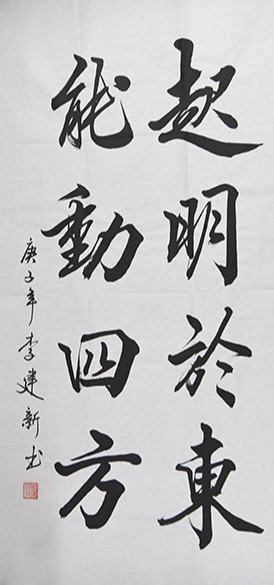 起明於東
能動四方
庚子年李建新书